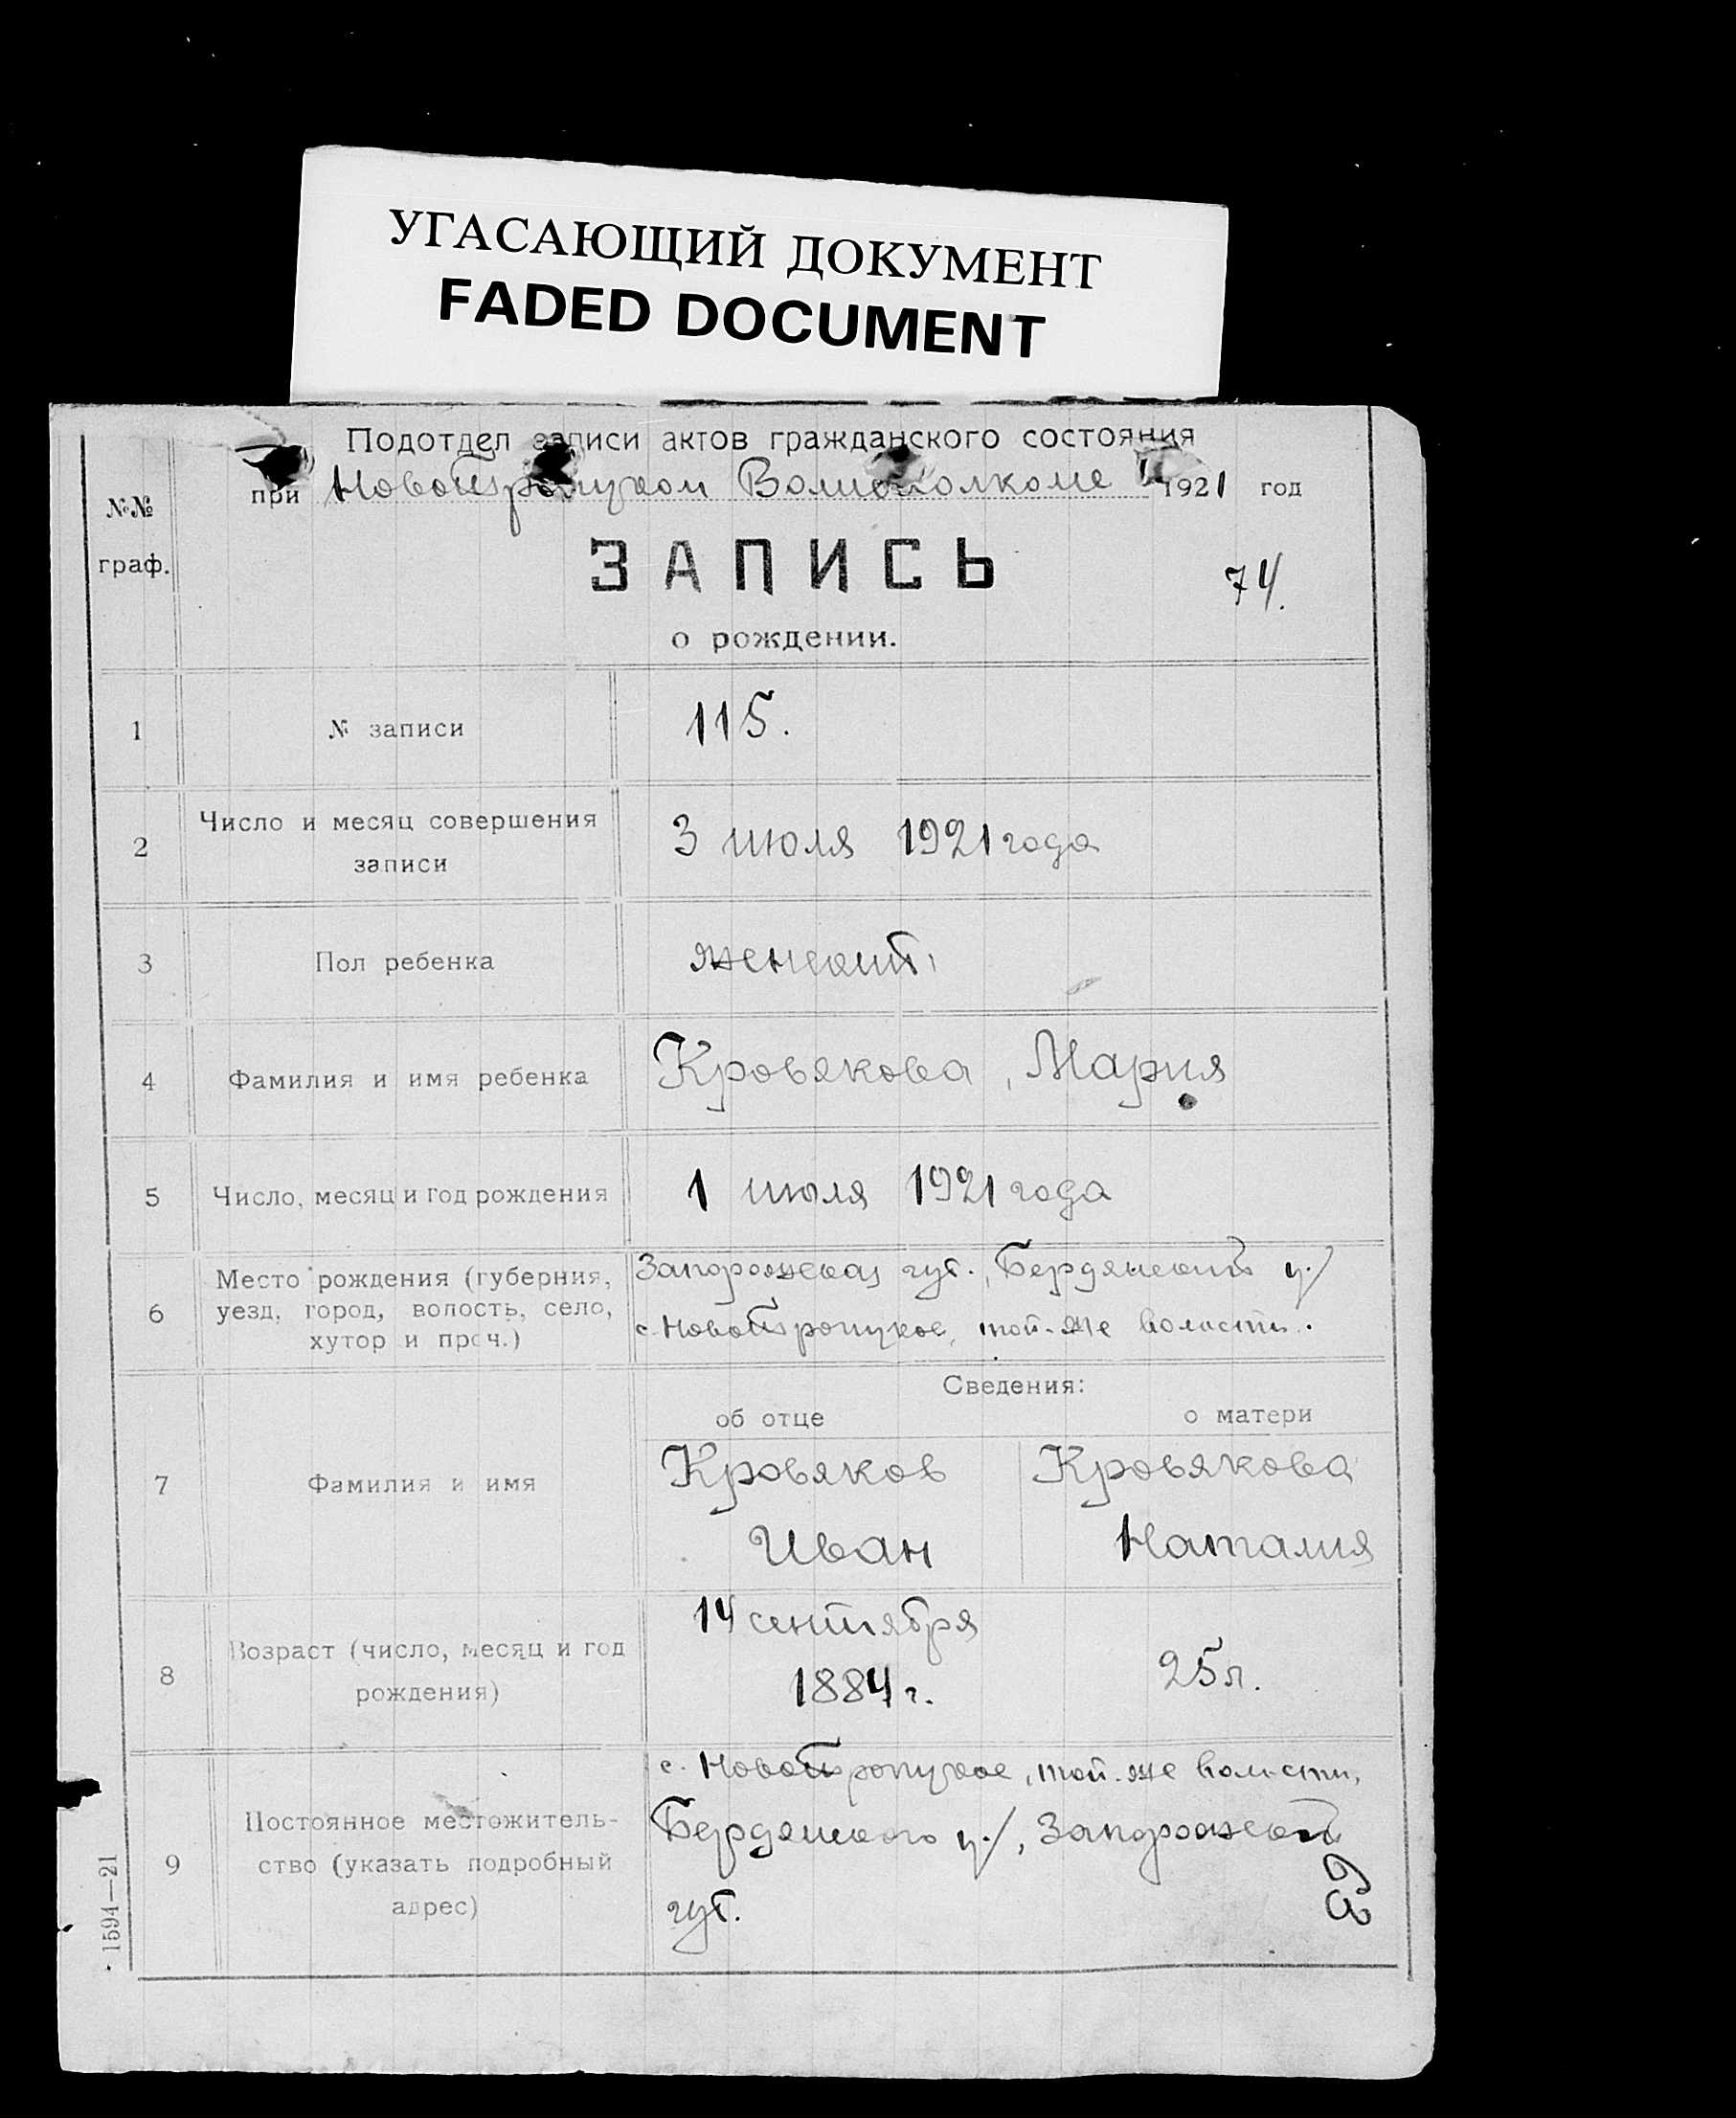 УГАСАЮЩИЙ ДОКУМЕНТ
FADED DOCUMENT
Подотдел записи актов гражданского состояния
при Новотроицком Волисполкоме 1921 год
№№
граф.
ЗАПИСЬ
74.
о рождении.
1 № записи 115.
2 Число и месяц совершения записи 3 июля 1921 года
3 Пол ребенка женский
4 Фамилия и имя ребенка Кровякова, Мария
5 Число, месяц и год рождения 1 июля 1921 года
6 Место рождения (губерния, Запорожская губ., Бердянский у./
уезд, город, волость, село, с. Новотроицкое, той-же волости.
хутор и проч.)
Сведения:
об отце о матери
7 Фамилия и имя Кровяков Кровякова
Иван Наталия
8 Возраст (число, месяц и год 14 сентября
рождения) 1884 г. 25 л.
с. Новотроицкое, той-же волости,
9 Постоянное местожитель- Бердянского у./, Запорожской
ство (указать подробный
адрес) губ.
1594—21